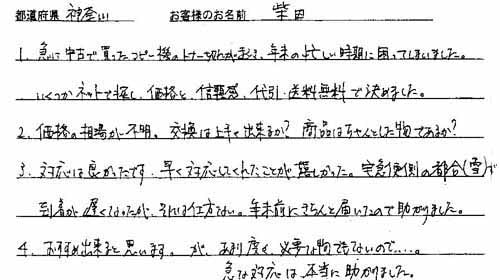 都道府県 神奈川 お客様のお名前 柴田
1. 急に中古で買ったコピー機のトナー切れが起き、年末の忙しい時期に困ってしまいました。
いくつかネットで探し、価格と、信頼感、代引・送料無料で決めました。
2. 価格の相場が不明。交換は上手く出来るか？商品はちゃんとした物であるか？
3. 対応は良かったです。早く対応してくれたことが嬉しかった。宅急便側の都合(雪)で
到着が遅くなったが、それは仕方ない。年末前にきちんと届いたので助かりました。
4. おすすめ出来ると思います。が、あまり度々必要な物でもないので…。
急な対応は本当に助かりました。